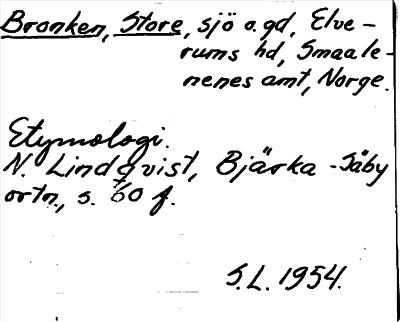 Bronken, Store, sjö o. gd, Elve-
rums hd, Smaale-
nenes amt, Norge.
Etymologi.
N. Lindqvist, Bjärka-Säby
ortn., s. 60 f.
S.L. 1954.